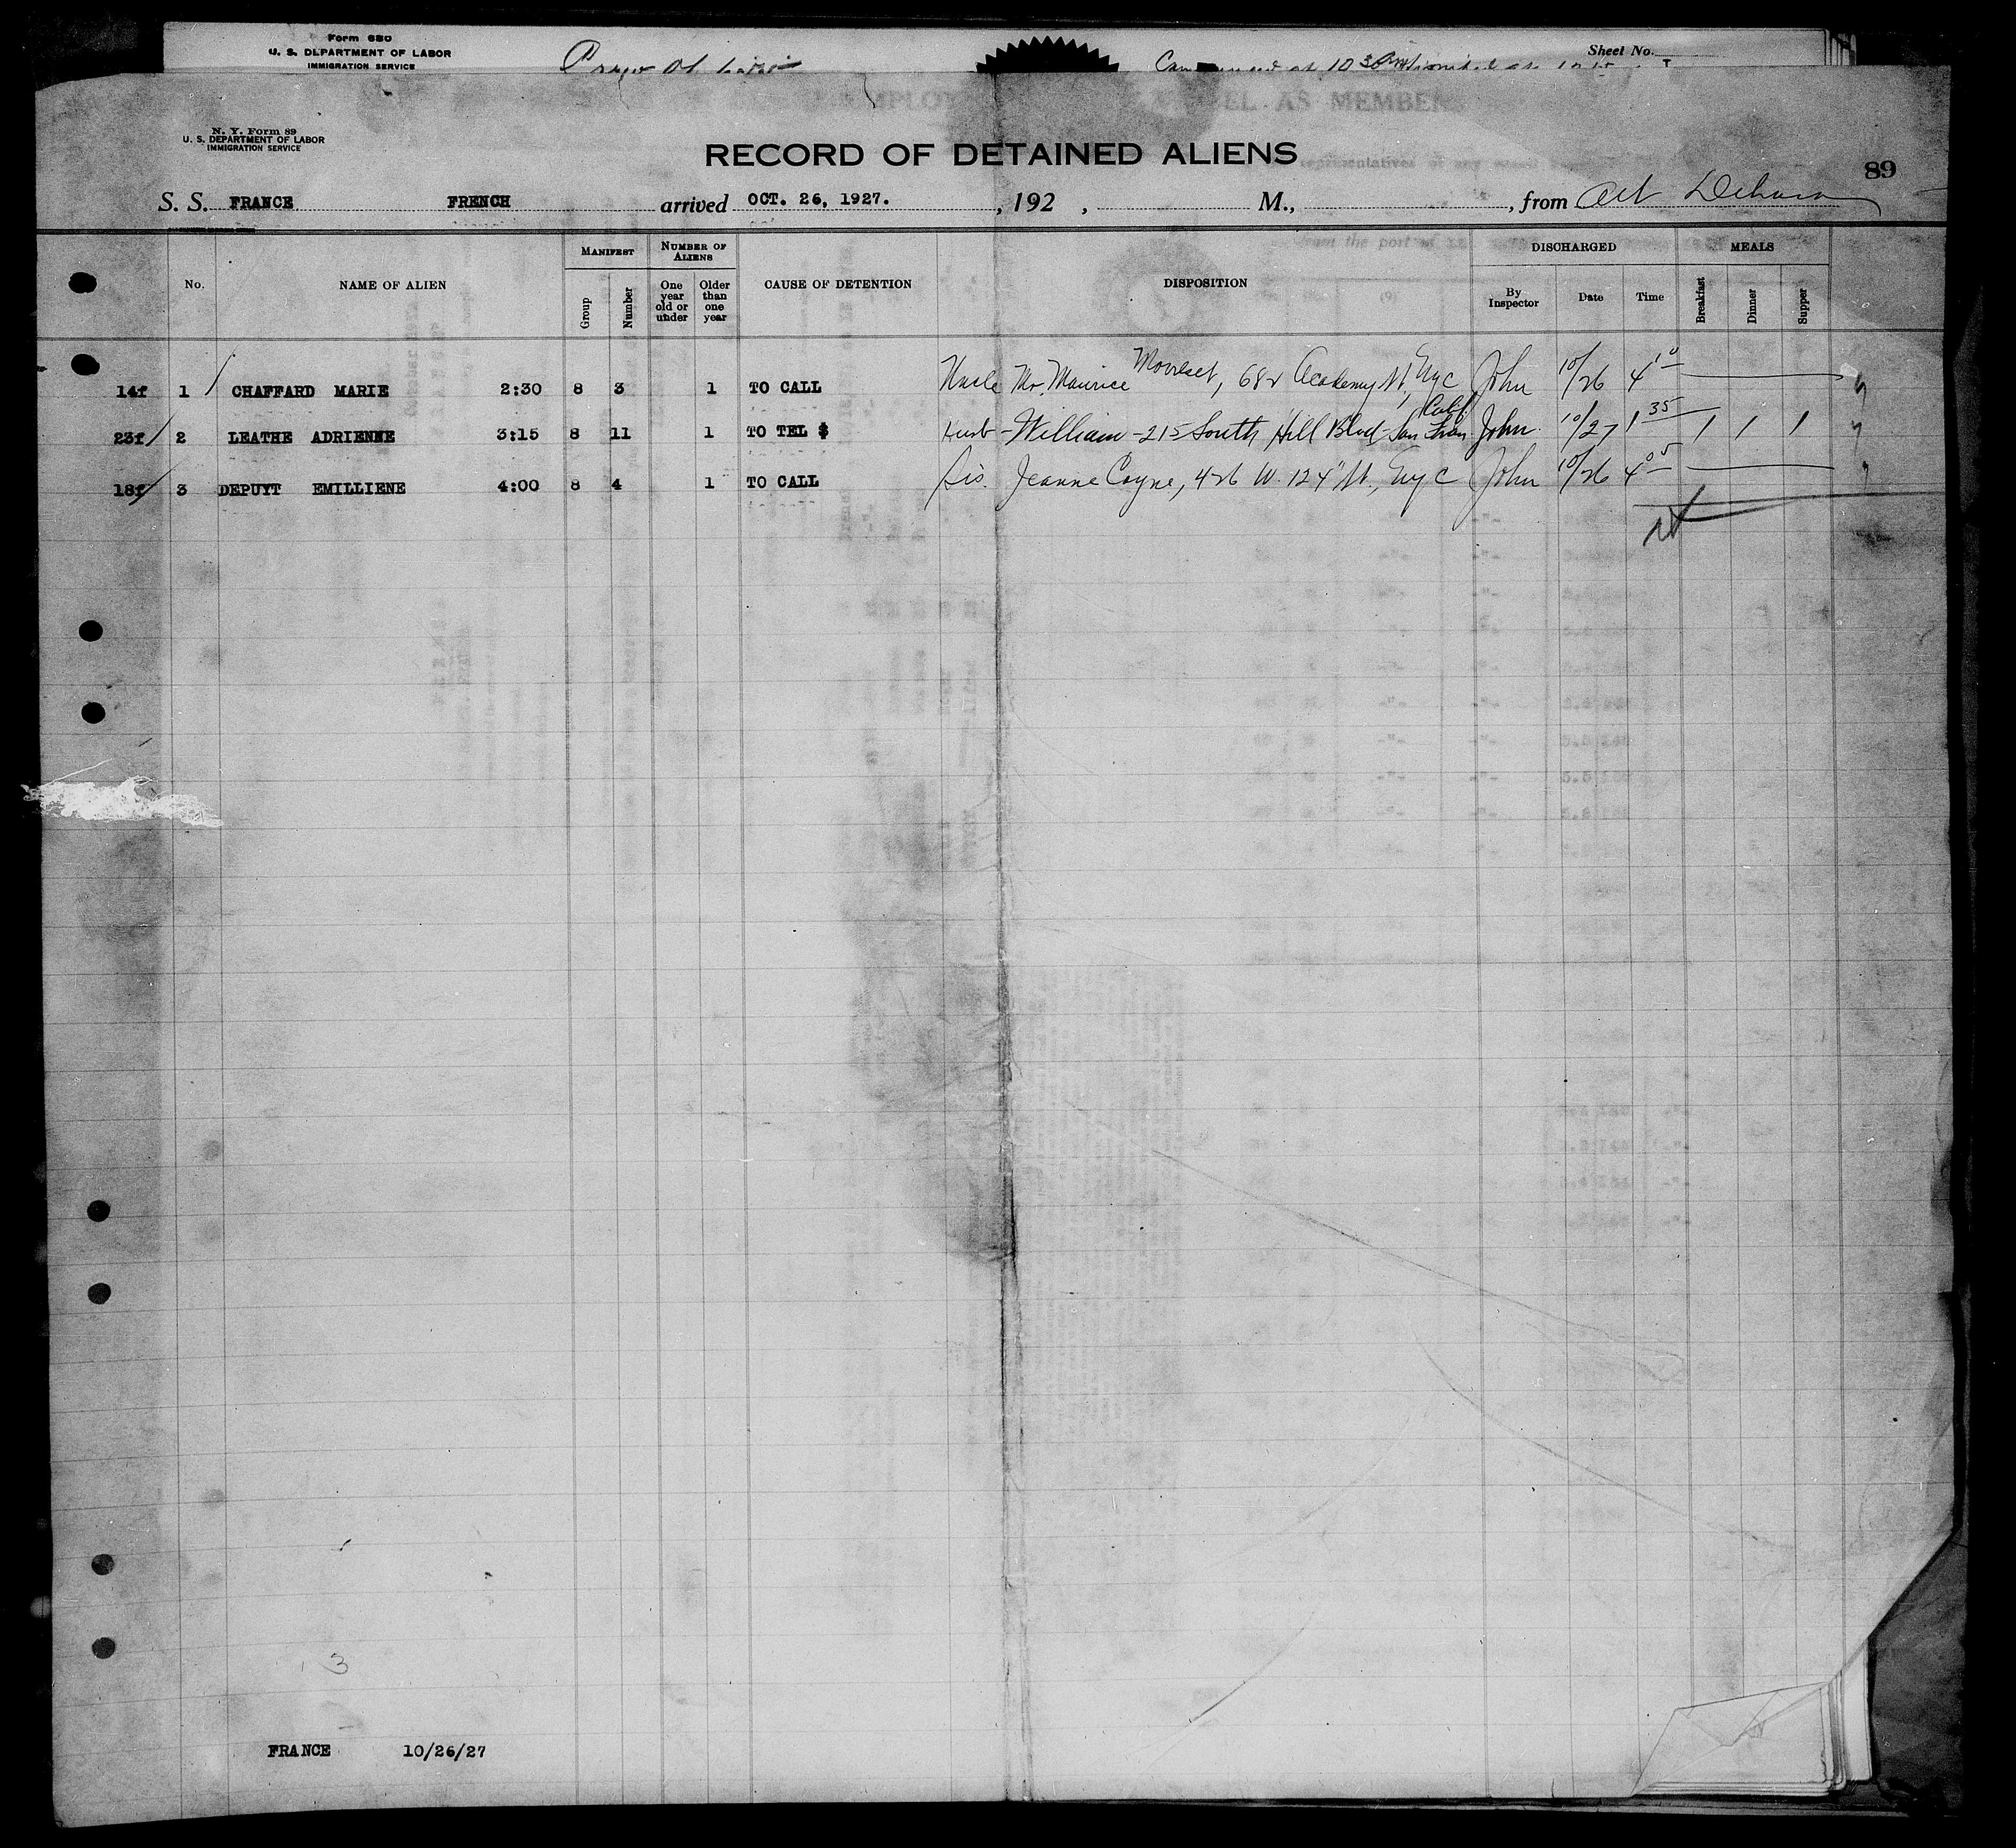 Form 680
U. S. DEPARTMENT OF LABOR
IMMIGRATION SERVICE
Sheet No.
N. Y. Form 89
U. S. DEPARTMENT OF LABOR
IMMIGRATION SERVICE
RECORD OF DETAINED ALIENS
89
S. S. FRANCE FRENCH arrived OCT. 26, 1927. , 192 , M., , from
No. NAME OF ALIEN MANIFEST NUMBER OF ALIENS CAUSE OF DETENTION DISPOSITION DISCHARGED MEALS
Group Number One year old or under Older than one year By Inspector Date Time Breakfast Dinner Supper
14f 1 / CHAFFARD MARIE 2:30 8 3 1 TO CALL Uncle Mr. Maurice 682 Academy St, NyC John 10/26 4 10
23f/ 2 LEATHE ADRIENNE 3:15 8 11 1 TO TEL $ Husb - William - 215 South Hill Blvd - San Fran Calif. John 10/27 1 35 1 1 1
18f/ 3 DEPUYT EMILLIENE 4:00 8 4 1 TO CALL Sis. Jeanne Coyne, 426 W. 124" St., NyC John 10/26 4 05
3
FRANCE 10/26/27